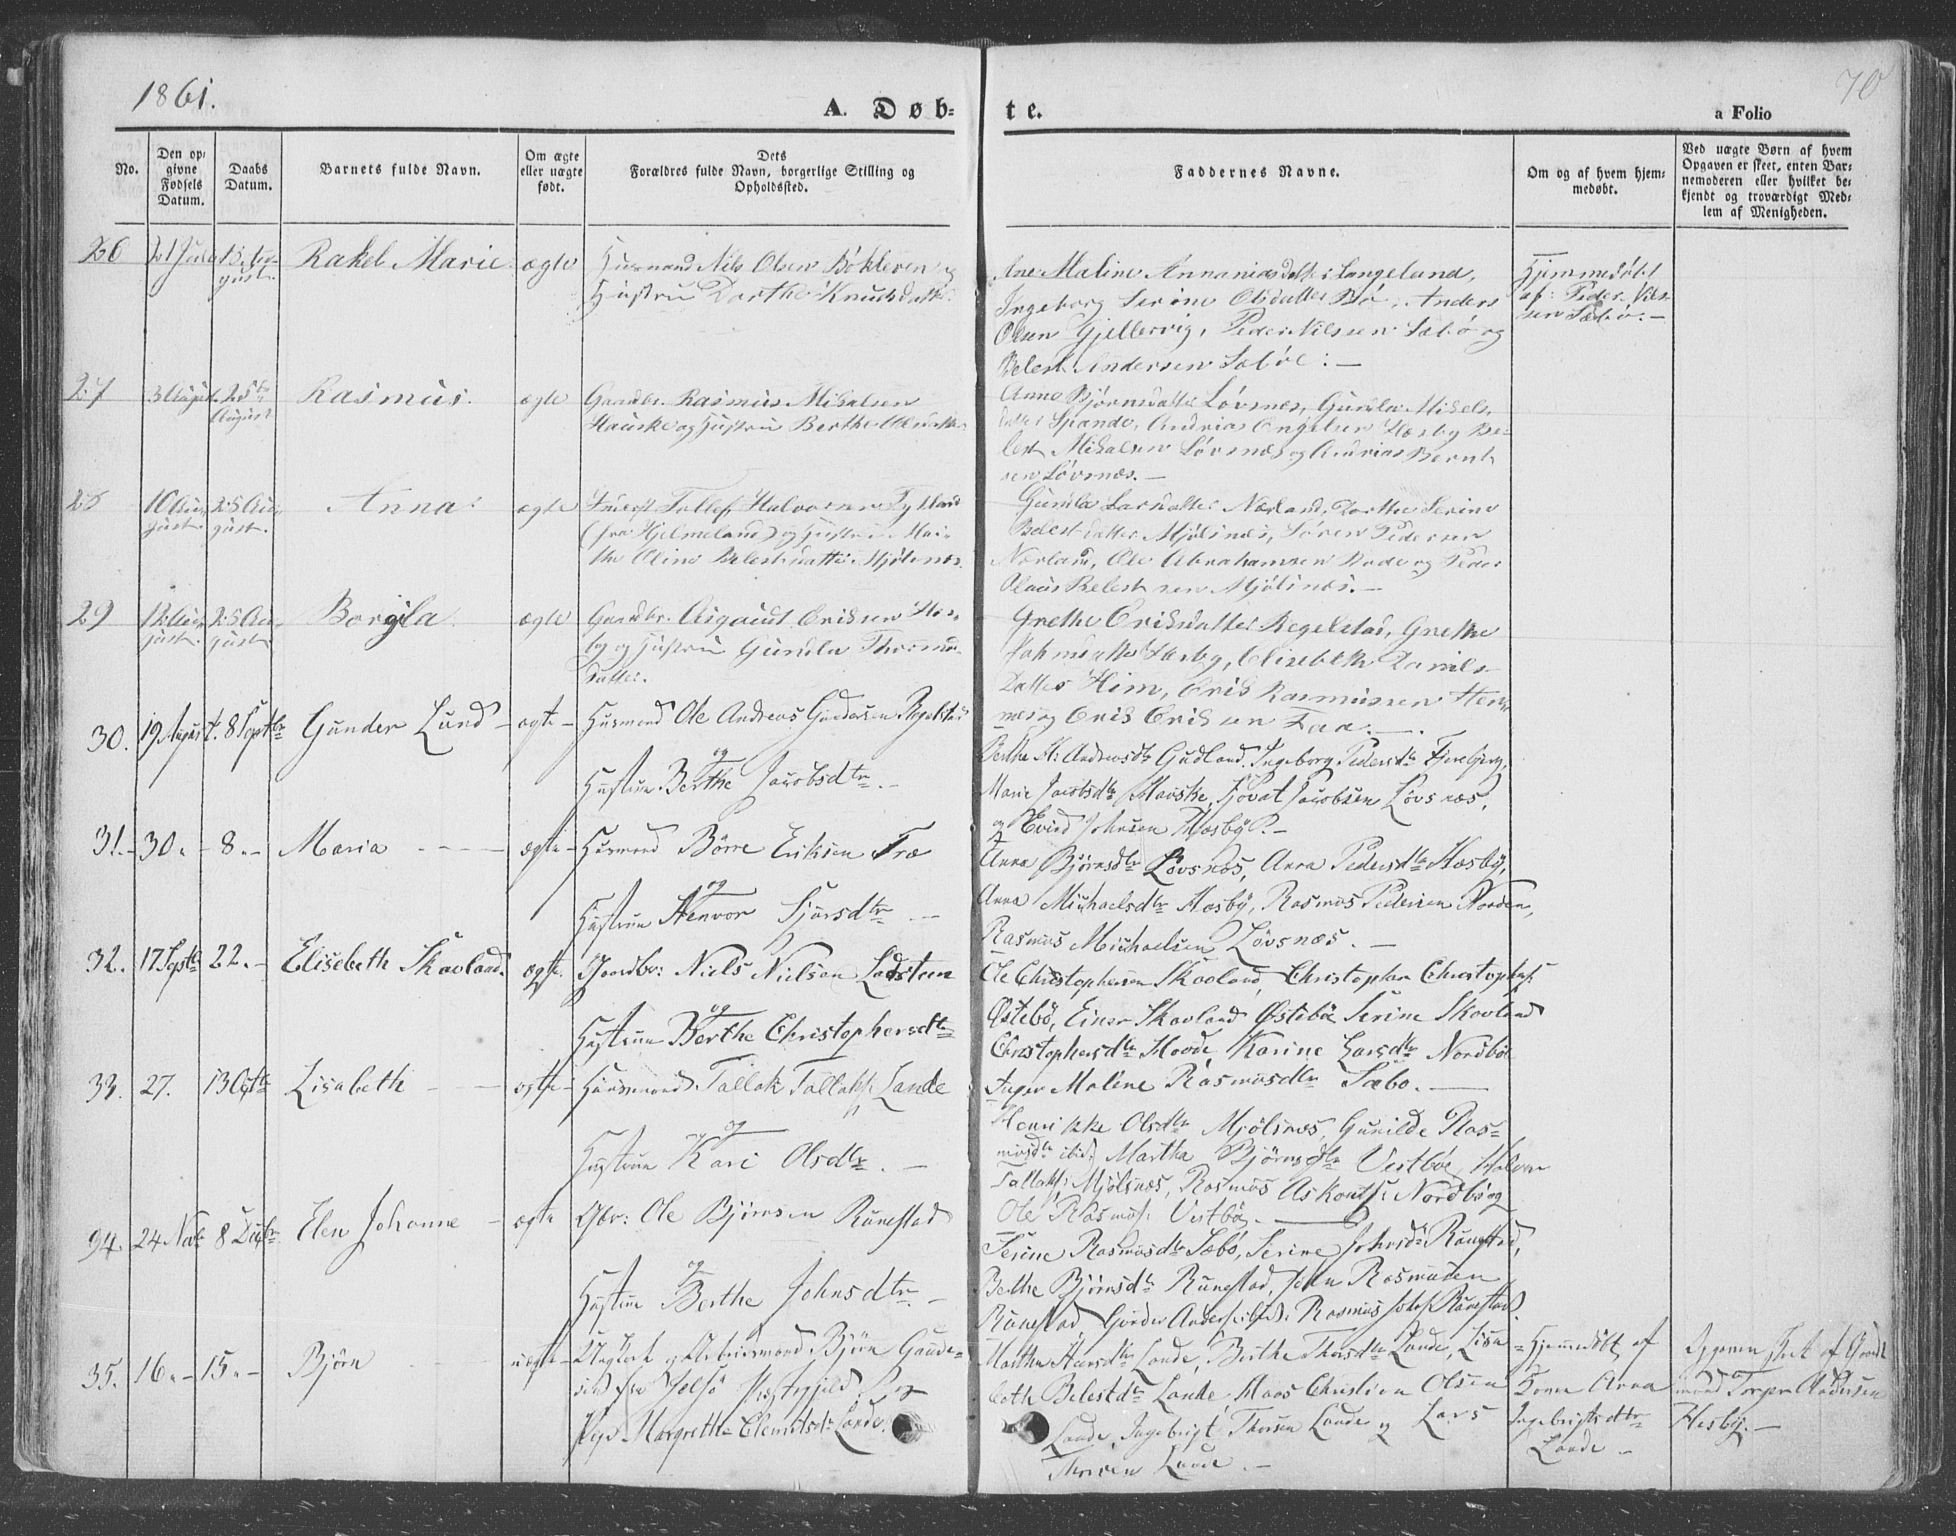 1861.
70
A. Døb-
te.
a Folio
No.
Den op-
givne
Fødsels
Datum.
Daabs
Datum.
Barnets fulde Navn.
Om ægte
eller uægte
født.
Dets
Forældres fulde Navn, borgerlige Stilling og
Opholdssted.
Faddernes Navne.
Om og af hvem hjem-
medøbt.
Ved uægte Børn af hvem
Opgaven er skeet, enten Bar-
nemoderen eller hvilket be-
kjendt og troværdigt Med-
lem af Menigheden.
26 21 Juli Rakel Marie ægte Husmand Nils Olsen Bökleven og
gust. Hustru Dorthe Knudsdatter
Ane Maline Annaniasdatter Langeland,
Ingeborg Serine Olsdatter Bö, Anders
Olsen Gjellervig, Peder Nilssen Sæbö og
Belest Andersen Sæböe: —
Hjemmedöbt
af: Peder Nils-
sen Sæbö. —
27 3 August 25de Rasmus. ægte Gaardbr. Rasmus Mikalsen
August Hauske og Hustru Berthe Olsdatter
Anne Björnsdatter Lövsnes, Gunla Mikels
datter Spande, Andrias Engelsen Hæsby Be-
lest Mikalsen Lövsnæs og Andrias Bernt
sen Lövsnæs. —
28 10 Au- 25 Au- Anna. ægte Tollef Halvorsen
gust. gust. (fra Hjelmeland) og Hustru Mar-
the Oline Belestsdatter Mjölsnæs.
Gunla Larsdatter Nærland, Dorthe Serine
Belestsdatter Mjölsnæs, Sören Pedersen
Nærland, Ole Abrahamsen og Peder
Olaus Belestsen Mjölsnæs. —
29 12 Au- 25 Au- Borgila ægte Gaardbr. Asgaut Eriksen Hes-
gust. gust. by og Hustru Gunla Thormods-
datter.
Grethe Eriksdatter Regelstad, Grethe
Johnsdatter Hesby, Elisebeth Daniels-
datter Him, Erik Rasmussen Hen-
næs og Erik Eriksen Faa. —
30. 19 August. 8 Septbr Gunder Lund – ægte – Husmand Ole Andreas Gundersen Regelstad
og
Hustrue Berthe Jacobsdtr. –
Berthe M. Andreasdtr Gudland. Ingeborg Pedersdtr Fjereberg,
Marie Jacobsdtr Hauske, Sjovat Jacobsen Lövsnæs,
og Evind Johnsen Hæsby. –
31. – 30. – 8. – Maria – – – ægte – Husmand Börre Eriksen Træ
og
Hustrue Stenvor Sjursdtr –
Anna Björnsdtr Lövsnæs, Anna Pedersdtr Hæsby,
Anna Michaelsdtr Hæsby, Rasmus Pedersen Norden,
Rasmus Michaelsen Lövsnæs. –
32. 17 Septbr 22. – Elisebeth Skavland. ægte Gaardbr: Niels Nielsen Ladsteen
og
Hustrue Berthe Christophersdtr
Ole Christophersen Skavland, Christopher Christophs:
Östebö, Einer Skavland Östebö Serine Skavland
Christophersdtr Hovde, Karine Larsdtr Nordböe
Inger Maline Rasmusdtr Sæbö. —
33. 27. 13 Octbr Lisabeth – – ægte – Huusmand Tallak Tallaks: Lande
og
Hustrue Kari Olsdtr. –
Henrikke Olsdtr Mjölsnæs, Gunilde Ras-
musdtr ibid, Martha Björnsdtr Vestböe, Halvor
Tallaks: Mjölsnæs, Rasmus Askouts: Nordbö og
Ole Rasmus: Vestbö. —
34. 24 Novbr 8 Decbr Elen Johanne – ægte Gbr: Ole Björnsen Runestad
og
Hustrue Berthe Johnsdtr –
Serine Rasmusdtr Sæbö, Serine Johnsdtr Runestad,
Berthe Björnsdtr Runestad, John Rasmusen
Runestad, Gunder Anders: ibid: Rasmus Johns: Runestad
35. 16. – 15. – Björn – uægte – Ungkarl og Arbeidsmand Björn Gaude-
sen fra Jelsö Præstegjeld og
Pige Margrethe Clemetsdtr Lande.
Martha Lande, Berthe Thorsdtr Lande, Lisa
beth Belestdtr Lande, Hans Christian Olsen
Lande, Ingebrigt Thorsen Lande og Lars
Thorsen Lande. –
– Hjemmedöbt af
Konen Anna
Ingebrigtsdtr
Lande –
Opgaven skeet af Gaard
mand Torger Andersen
Hesby. –